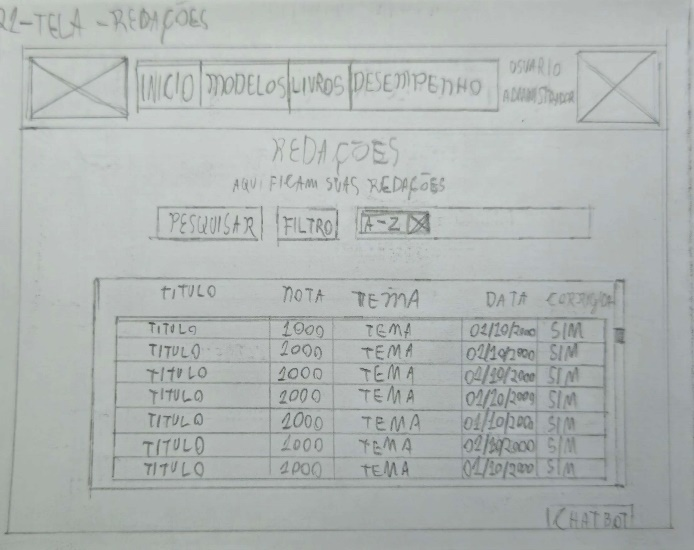 22-TELA-REDAÇÕES
INICIO MODELOS LIVROS DESEMPENHO USUARIO
ADMINISTRADOR
REDAÇÕES
AQUI FICAM SUAS REDAÇÕES
PESQUISAR FILTRO A-Z
TITULO NOTA TEMA DATA CORRIGIDA
TITULO 1000 TEMA 01/10/2000 SIM
TITULO 1000 TEMA 01/10/2000 SIM
TITULO 1000 TEMA 01/10/2000 SIM
TITULO 1000 TEMA 01/10/2000 SIM
TITULO 1000 TEMA 01/10/2000 SIM
TITULO 1000 TEMA 01/10/2000 SIM
TITULO 1000 TEMA 01/10/2000 SIM
CHATBOT